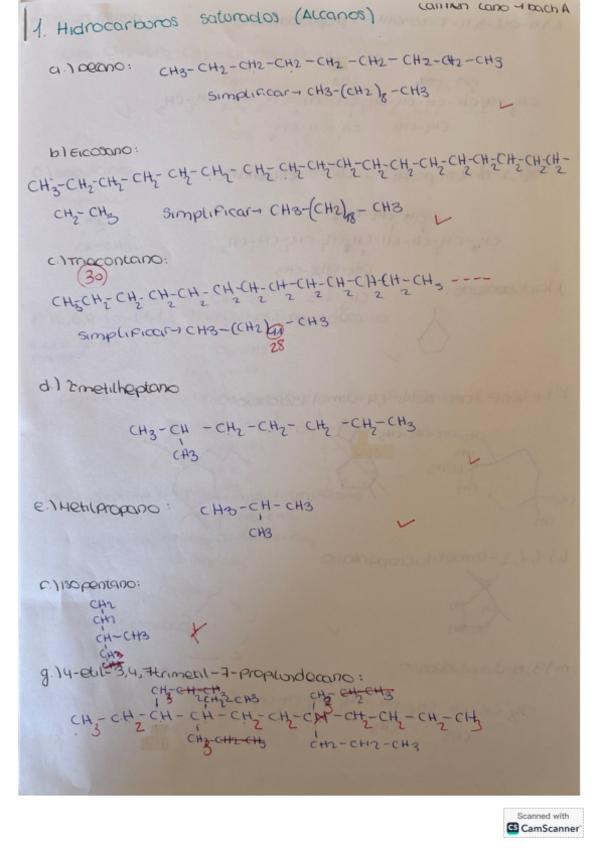 1. Hidrocarburos saturados (Alcanos)
a.) Decano: CH3-CH2-CH2-CH2-CH2-CH2-CH2-CH2-CH3
Simplificar→ CH3-(CH2)8-CH3
b) Eicosano:
CH3-CH2-CH2-CH2-CH2-CH2-CH2-CH2-CH2-CH2-CH2-CH2-CH2-CH2-CH2-CH2-CH2-CH2-
CH2-CH3 Simplificar→ CH3-(CH2)18-CH3
c.)
30
CH3-CH2-CH2-CH2-CH2-CH2-CH2-CH2-CH2-CH2-CH2-CH2-CH2-CH3 ----
Simplificar→ CH3-(CH2) -CH3
28
d.) 2metilheptano
CH3-CH-CH2-CH2-CH2-CH2-CH3
CH3
e.) Metilpropano: CH3-CH-CH3
CH3
f.) Isopentano:
CH2
CH2
CH-CH3
g.) 4-etil-3,4,7trimetil-7-propilundecano:
CH3 CH2-CH3 CH3
CH3-CH2-CH-CH-CH2-CH2- -CH2-CH2-CH2-CH3
CH3 CH2-CH2-CH3
Scanned with
CS CamScanner